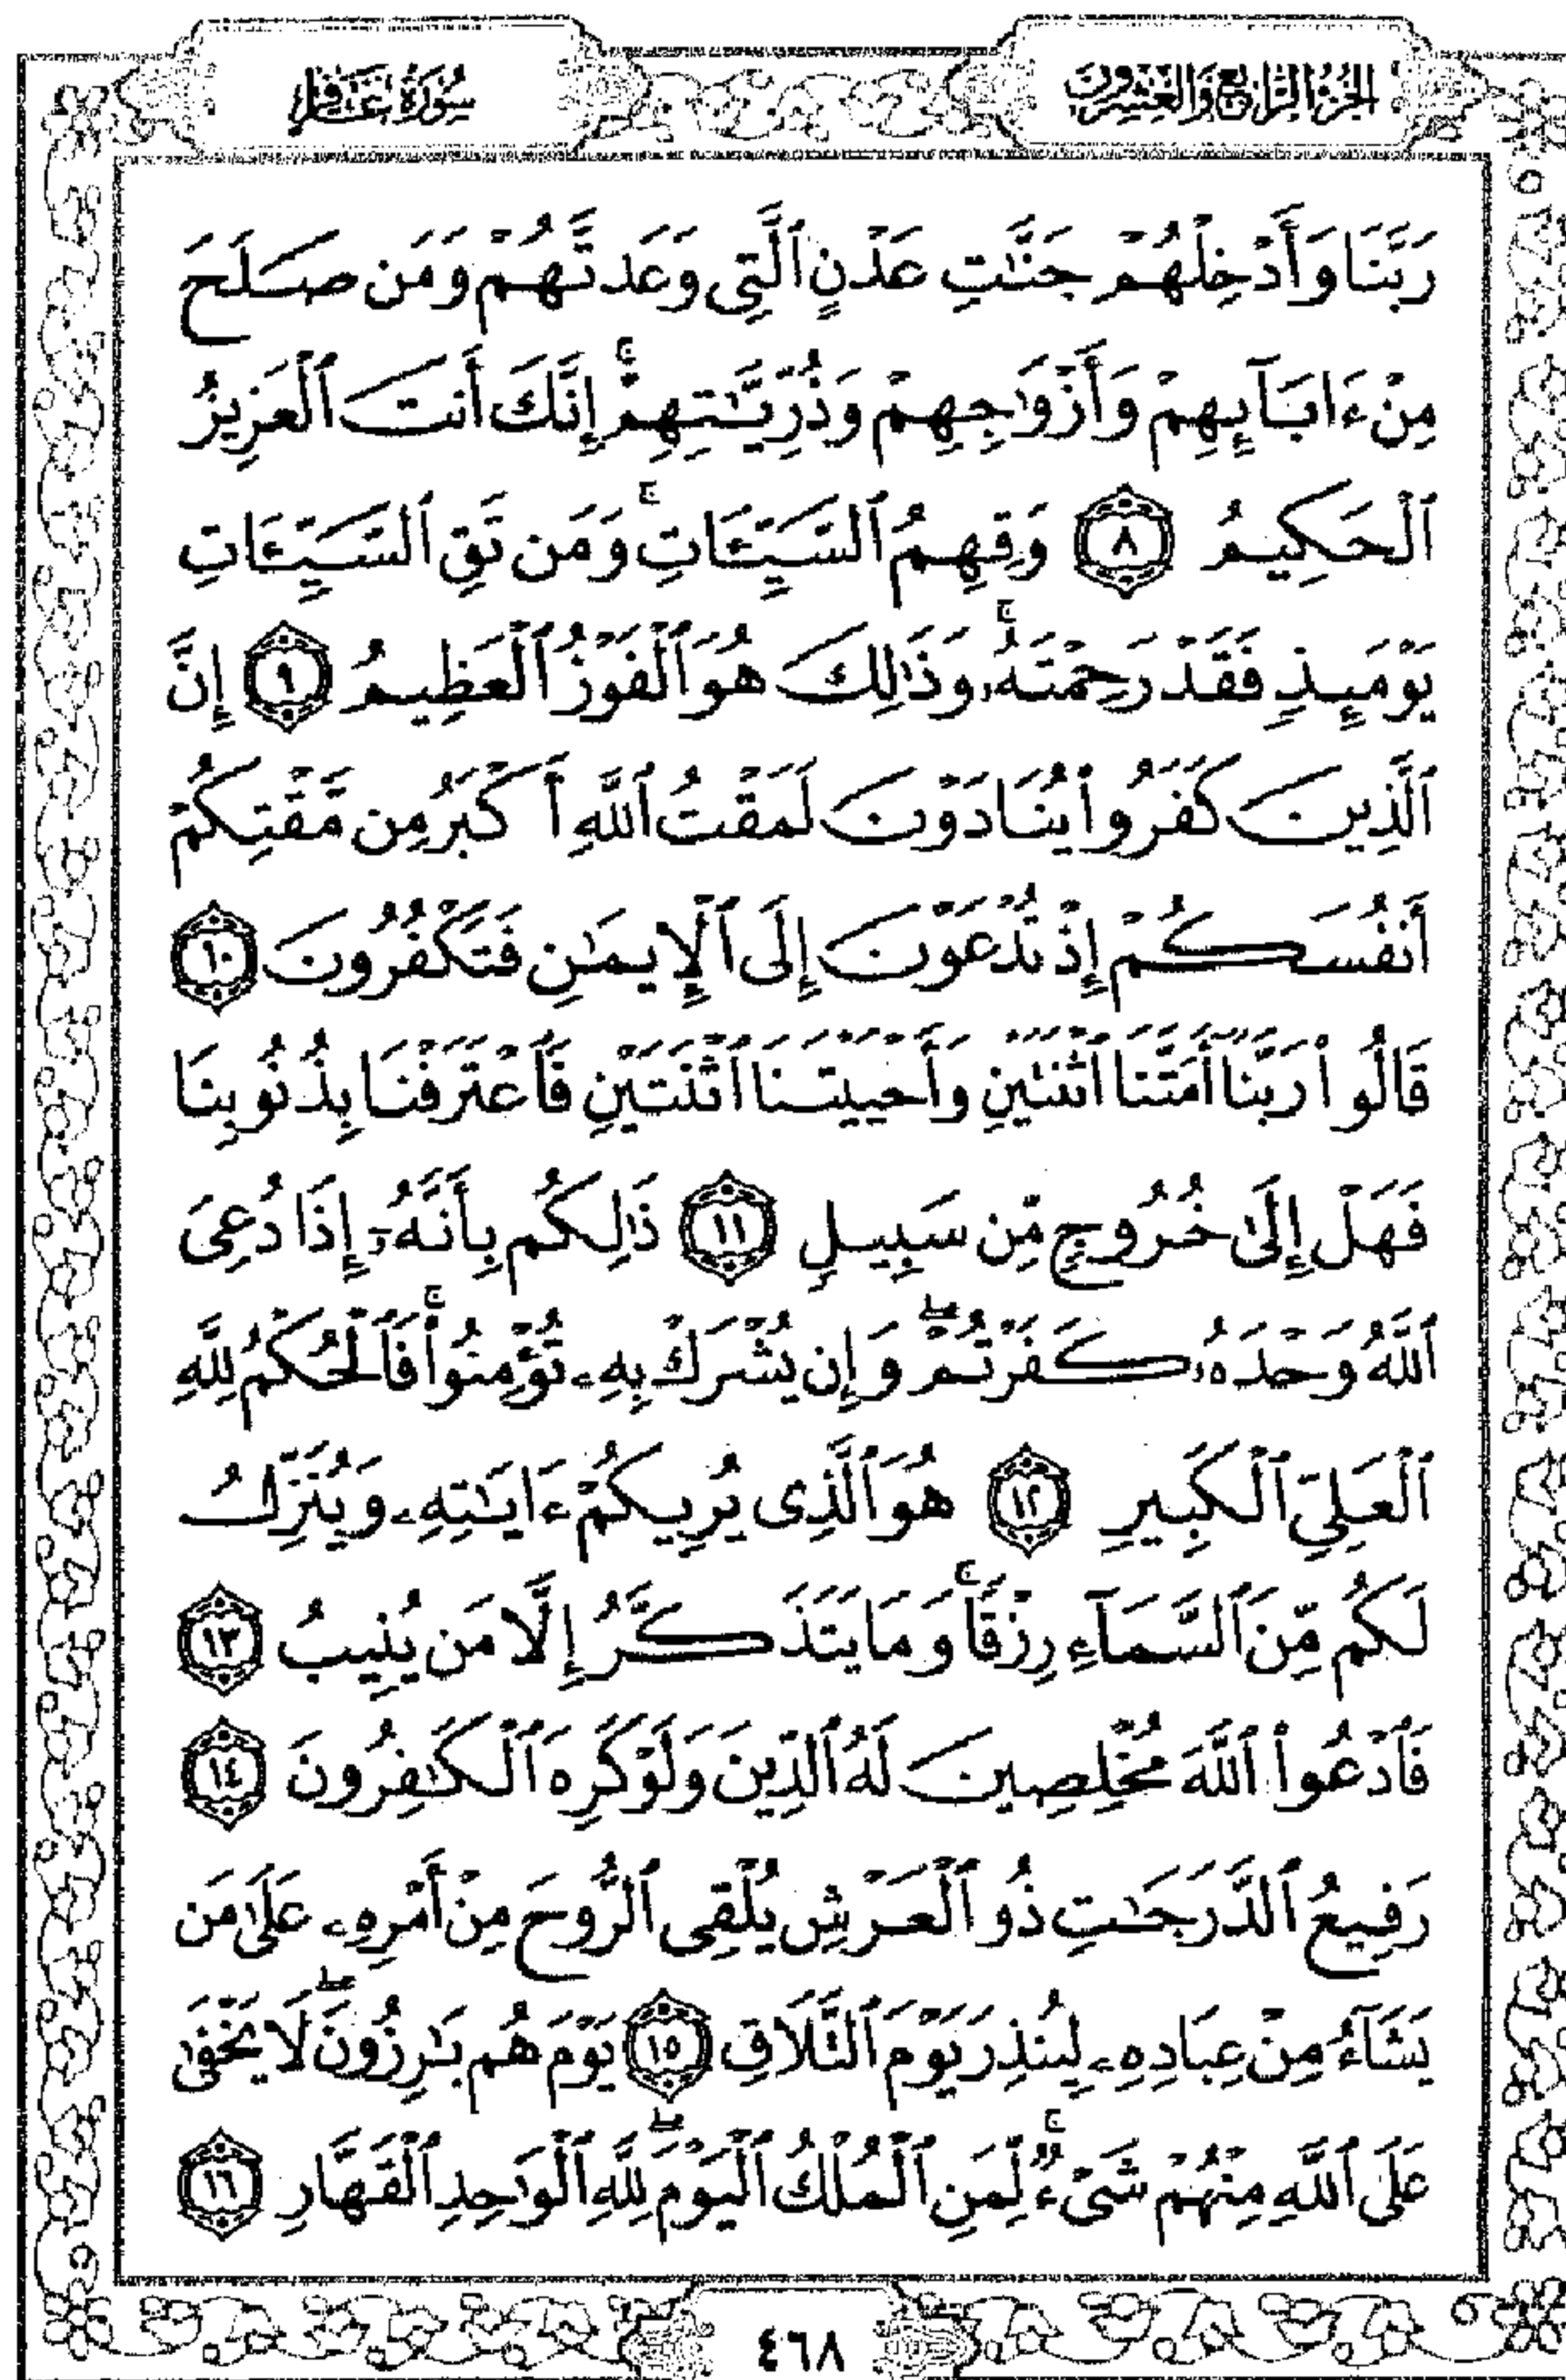 الجُزْءُ الرَّابِعُ وَالعِشْرُونَ
سُورَةُ غَافِرٍ
رَبَّنَا وَأَدْخِلْهُمْ جَنَّٰتِ عَدْنٍ ٱلَّتِى وَعَدتَّهُمْ وَمَن صَلَحَ
مِنْ ءَابَآئِهِمْ وَأَزْوَٰجِهِمْ وَذُرِّيَّٰتِهِمْ ۚ إِنَّكَ أَنتَ ٱلْعَزِيزُ
ٱلْحَكِيمُ ٨ وَقِهِمُ ٱلسَّيِّـَٔاتِ ۚ وَمَن تَقِ ٱلسَّيِّـَٔاتِ
يَوْمَئِذٍ فَقَدْ رَحِمْتَهُۥ ۚ وَذَٰلِكَ هُوَ ٱلْفَوْزُ ٱلْعَظِيمُ ٩ إِنَّ
ٱلَّذِينَ كَفَرُوا۟ يُنَادَوْنَ لَمَقْتُ ٱللَّهِ أَكْبَرُ مِن مَّقْتِكُمْ
أَنفُسَكُمْ إِذْ تُدْعَوْنَ إِلَى ٱلْإِيمَٰنِ فَتَكْفُرُونَ ١٠
قَالُوا۟ رَبَّنَآ أَمَتَّنَا ٱثْنَتَيْنِ وَأَحْيَيْتَنَا ٱثْنَتَيْنِ فَٱعْتَرَفْنَا بِذُنُوبِنَا
فَهَلْ إِلَىٰ خُرُوجٍ مِّن سَبِيلٍ ١١ ذَٰلِكُم بِأَنَّهُۥٓ إِذَا دُعِىَ
ٱللَّهُ وَحْدَهُۥ كَفَرْتُمْ ۖ وَإِن يُشْرَكْ بِهِۦ تُؤْمِنُوا۟ ۚ فَٱلْحُكْمُ لِلَّهِ
ٱلْعَلِىِّ ٱلْكَبِيرِ ١٢ هُوَ ٱلَّذِى يُرِيكُمْ ءَايَٰتِهِۦ وَيُنَزِّلُ
لَكُم مِّنَ ٱلسَّمَآءِ رِزْقًا ۚ وَمَا يَتَذَكَّرُ إِلَّا مَن يُنِيبُ ١٣
فَٱدْعُوا۟ ٱللَّهَ مُخْلِصِينَ لَهُ ٱلدِّينَ وَلَوْ كَرِهَ ٱلْكَٰفِرُونَ ١٤
رَفِيعُ ٱلدَّرَجَٰتِ ذُو ٱلْعَرْشِ يُلْقِى ٱلرُّوحَ مِنْ أَمْرِهِۦ عَلَىٰ مَن
يَشَآءُ مِنْ عِبَادِهِۦ لِيُنذِرَ يَوْمَ ٱلتَّلَاقِ ١٥ يَوْمَ هُم بَٰرِزُونَ ۖ لَا يَخْفَىٰ
عَلَى ٱللَّهِ مِنْهُمْ شَىْءٌ ۚ لِّمَنِ ٱلْمُلْكُ ٱلْيَوْمَ ۖ لِلَّهِ ٱلْوَٰحِدِ ٱلْقَهَّارِ ١٦
٤٦٨